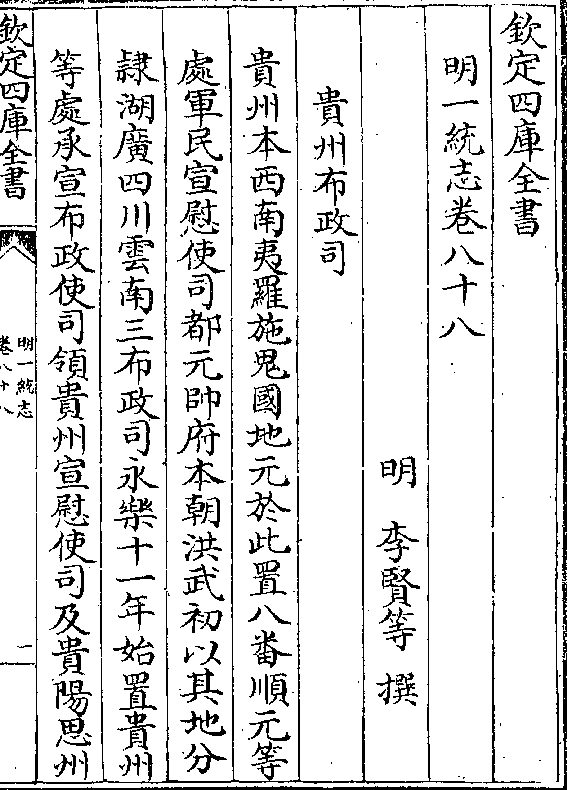 欽定四庫全書
明一統志卷八十八
明 李賢等 撰
貴州布政司
貴州本西南夷羅施鬼國地元於此置八番順元等
處軍民宣慰使司都元帥府本朝洪武初以其地分
隷湖廣四川雲南三布政司永樂十一年始置貴州
等處承宣布政使司領貴州宣慰使司及貴陽思州
欽定四庫全書
明一統志
卷八十八
一